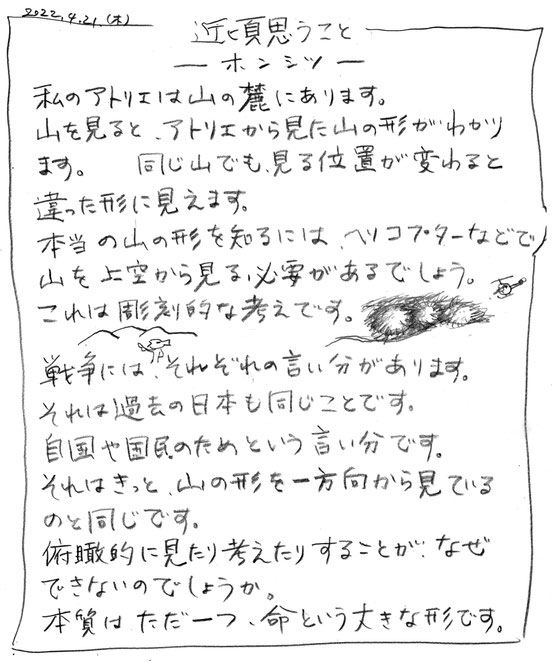 2022.4.21.(木)
近頃思うこと
ーホンシツー
私のアトリエは山の麓にあります。
山を見ると、アトリエから見た山の形がわかり
ます。 同じ山でも、見る位置が変わると
違った形に見えます。
本当の山の形を知るには、ヘリコプターなどで
山を上空から見る必要があるでしょう。
これは彫刻的な考えです。
戦争には、それぞれの言い分があります。
それは過去の日本も同じことです。
自国や国民のためという言い分です。
それはきっと、山の形を一方向から見ている
のと同じです。
俯瞰的に見たり考えたりすることが、なぜ
できないのでしょうか。
本質はただ一つ、命という大きな形です。